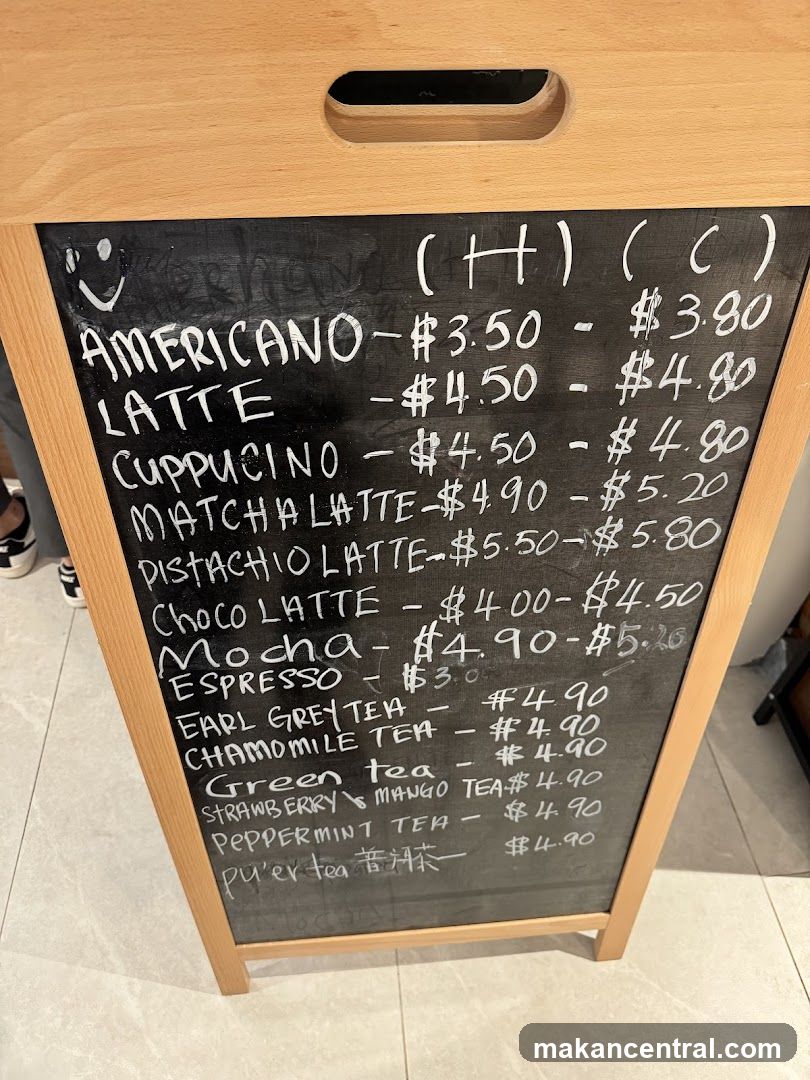 (H) (C)
AMERICANO - $3.50 - $3.80
LATTE - $4.50 - $4.80
CUPPUCINO - $4.50 - $4.80
MATCHA LATTE - $4.90 - $5.20
PISTACHIO LATTE - $5.50 - $5.80
CHOCO LATTE - $4.00 - $4.50
Mocha - $4.90 - $5.20
ESPRESSO - $3.0
EARL GREY TEA - $4.90
CHAMOMILE TEA - $4.90
Green tea - $4.90
STRAWBERRY & MANGO TEA $4.90
PEPPERMINT TEA - $4.90
pu'er tea 普洱茶 - $4.90
makancentral.com